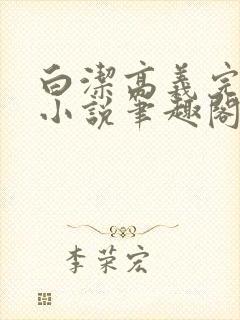 白潔高義完
小說筆趣閣
李荣宏